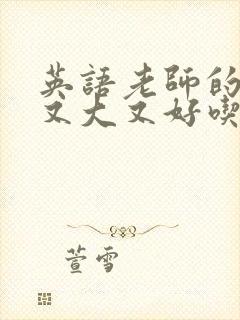 英語老師的
又大又好喫
萱雪